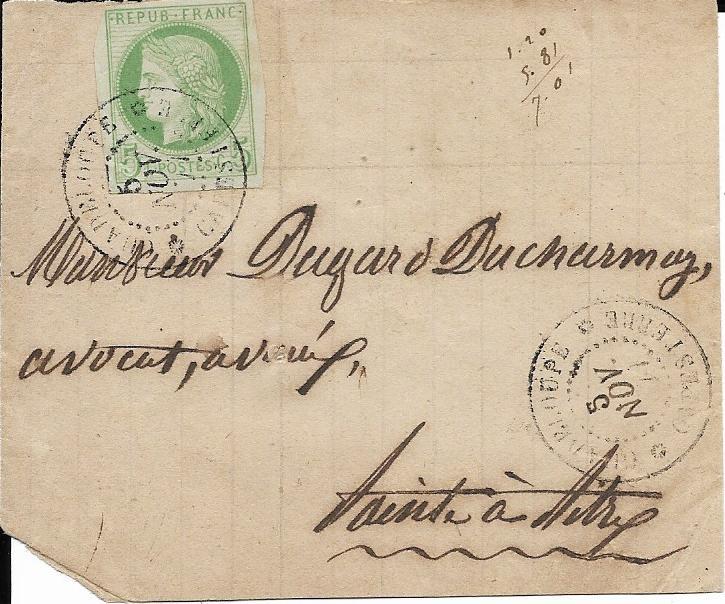 REPUB·FRANC·
5 POSTES 5
1.20
5.81
7.01
GUADELOUPE
NOV.
Monsieur Dugard Ducharmoy,
avocat, avoué,
GUADELOUPE
5
NOV.
77
Pointe à Pitre